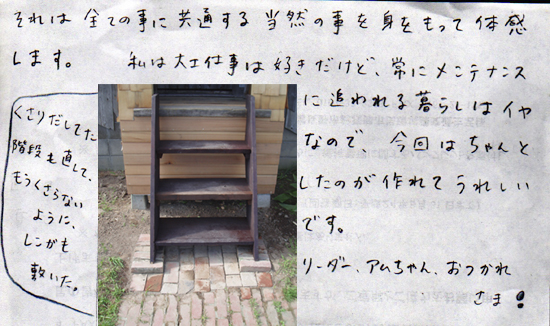 それは全ての事に共通する当然の事を身をもって体感
します。 私は大工仕事は好きだけど、常にメンテナンス
に追われる暮らしはイヤ
なので、今回はちゃんと
したのが作れてうれしい
です。
リーダー、アムちゃん、おつかれ
さま!
くさりだしてた
階段も直して、
もうくさらない
ように、
レンガも
敷いた。